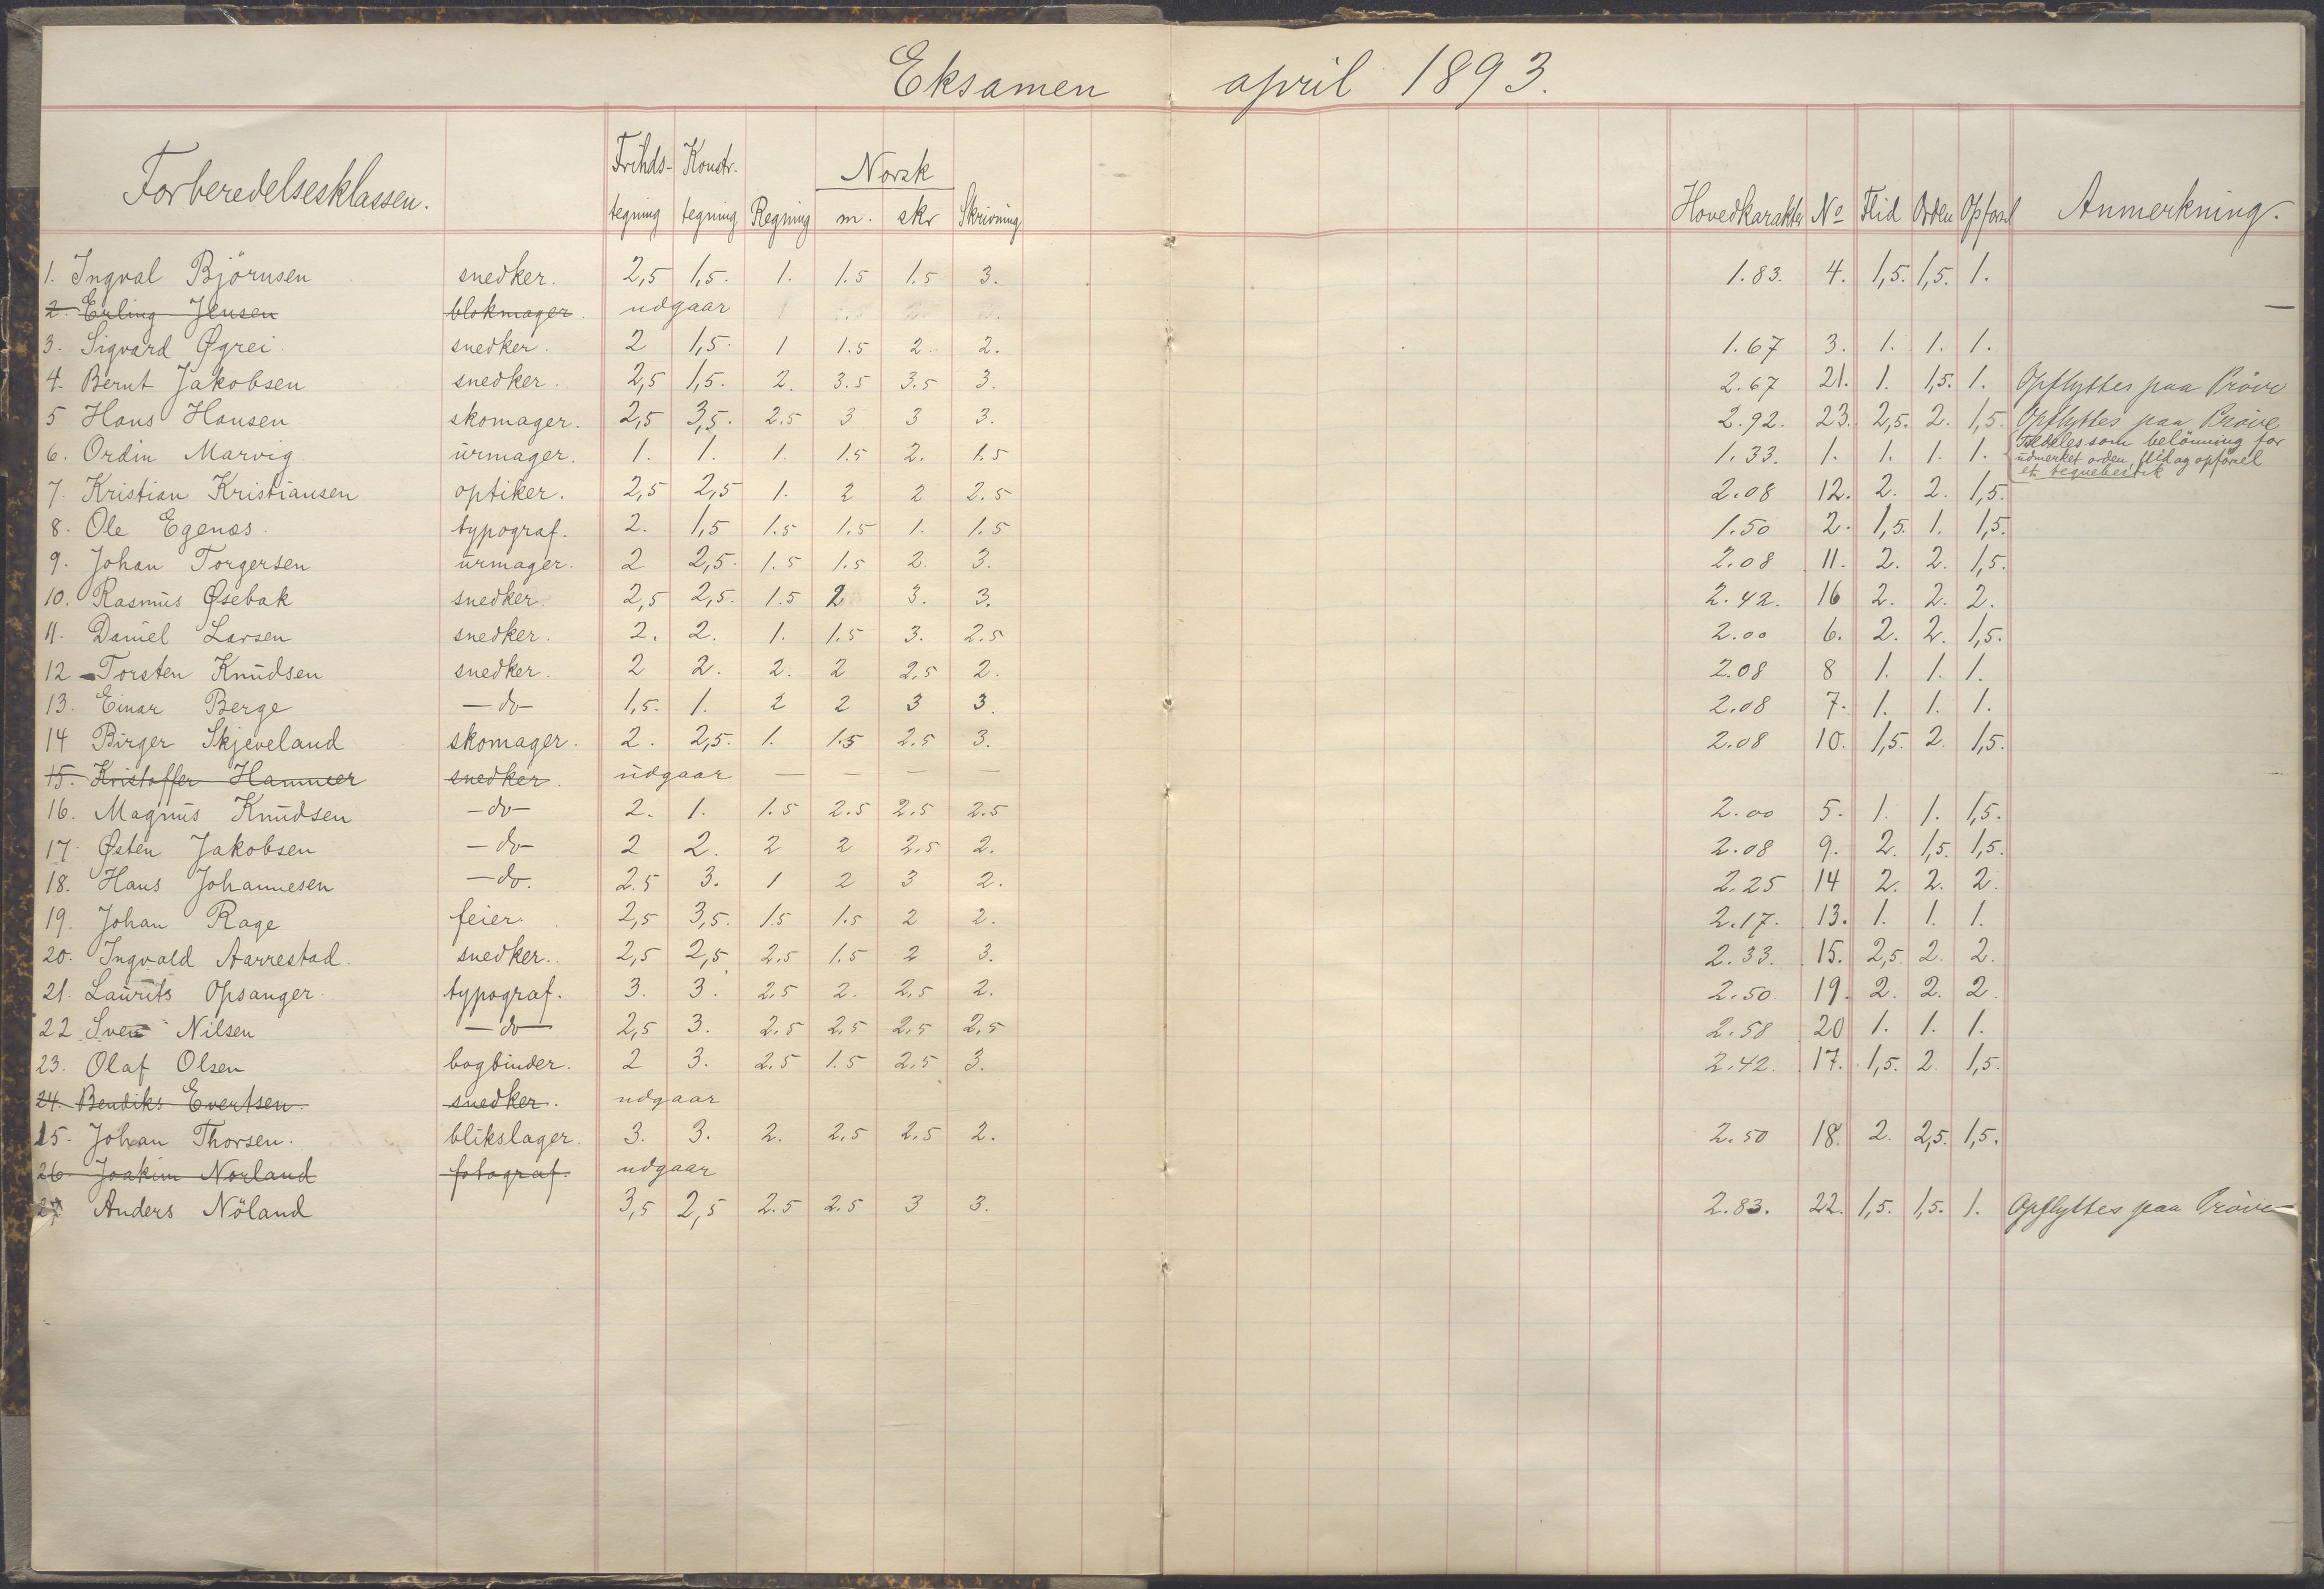 Eksamen april 1893.
Forberedelsesklassen. Frihds-tegning Konstr.tegning Regning Norsk m. skr Skrivning Hovedkarakter No Flid Orden Opførsel Anmerkning.
1. Ingval Björnsen snedker. 2,5 1,5. 1. 1.5 1.5 3. 1.83. 4. 1,5. 1,5. 1.
2. Erling Jensen blokmager. udgaar
3. Sigvard Øgrei. snedker. 2 1,5. 1 1.5 2. 2. 1.67 3. 1. 1. 1.
4. Bernt Jakobsen snedker. 2,5 1,5. 2. 3.5 3.5 3. 2.67 21. 1. 1,5. 1. Opflyttes paa Pröve
5 Hans Hansen skomager. 2,5 3,5. 2.5 3 3 3. 2.92. 23. 2,5. 2. 1,5. Opflyttes paa Pröve
6. Ordin Marvig urmager. 1. 1. 1. 1.5 2. 1.5 1.33. 1. 1. 1. 1. Tildeles som belönning for
udmerket orden, flid og opförsel
et tegnebestik
7. Kristian Kristiansen optiker. 2,5 2,5 1. 2 2 2.5 2.08 12. 2. 2. 1,5.
8. Ole Egenæs. typograf. 2. 1,5 1.5 1.5 1. 1.5 1.50 2. 1,5. 1. 1,5.
9. Johan Torgersen urmager. 2 2,5. 1.5 1.5 2. 3. 2.08 11. 2. 2. 1,5.
10. Rasmus Øsebak snedker. 2,5 2,5. 1.5 2 3. 3. 2.42. 16 2. 2. 2.
11. Daniel Larsen snedker. 2. 2. 1. 1.5 3. 2.5 2.00 6. 2. 2. 1,5.
12 Torsten Knudsen snedker. 2 2. 2. 2 2.5 2. 2.08 8 1. 1. 1.
13. Einar Berge — do — 1,5. 1. 2 2 3 3. 2.08 7. 1. 1. 1.
14 Birger Skjeveland skomager. 2. 2,5. 1. 1.5 2.5 3. 2.08 10. 1,5. 2. 1,5.
15. Kristoffer Hammer snedker. udgaar — — — —
16. Magnus Knudsen — do — 2. 1. 1.5 2.5 2.5 2.5 2.00 5. 1. 1. 1,5.
17. Østen Jakobsen — do — 2 2. 2 2 2.5 2. 2.08 9. 2. 1,5. 1,5.
18. Hans Johannesen — do. 2.5 3. 1 2 3 2. 2.25 14 2. 2. 2.
19. Johan Rage feier. 2,5 3,5. 1.5 1.5 2 2. 2.17. 13. 1. 1. 1.
20. Ingvald Aarrestad. snedker. 2,5 2,5 2.5 1.5 2 3. 2.33. 15. 2,5. 2. 2.
21. Laurits Opsanger. typograf. 3. 3. 2.5 2. 2.5 2. 2.50. 19. 2. 2. 2.
22 Sven Nilsen — do — 2,5 3. 2.5 2.5 2.5 2.5 2.58 20 1. 1. 1.
23. Olaf Olsen bogbinder. 2 3. 2.5 1.5 2.5 3. 2.42. 17. 1,5. 2. 1,5.
24. Bendiks Evertsen. snedker. udgaar
25. Johan Thorsen. blikslager. 3. 3. 2. 2.5 2.5 2. 2.50 18. 2. 2,5. 1,5.
26. Joakim Norland fotograf. udgaar
27 Anders Nöland 3,5 2,5 2.5 2.5 3 3. 2.83. 22. 1,5. 1,5. 1. Opflyttes paa Pröve